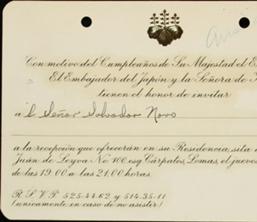 Con motivo del Cumpleaños de Su Majestad el
El Embajador del Japón y la Señora de
tienen el honor de invitar
al Señor Salvador Novo
a la recepción que ofrecerán en su Residencia, sita
Juan de Leyva No 100 esq Cárpatos, Lomas, el jueves
de las 19.00 a las 21.00 horas.
R. S. V. P. 525-44.62 y 514.35-11
(únicamente en caso de no asistir)